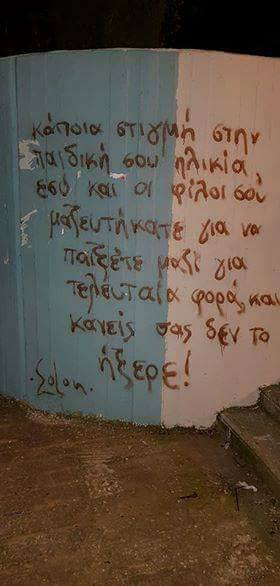 κάποια στιγμή στην
παιδική σου ηλικία,
εσύ και οι φίλοι σου
μαζευτήκατε για να
παίξετε μαζί για
τελευταία φορά, και
κανείς σας δεν το
ήξερε!
.Solon.